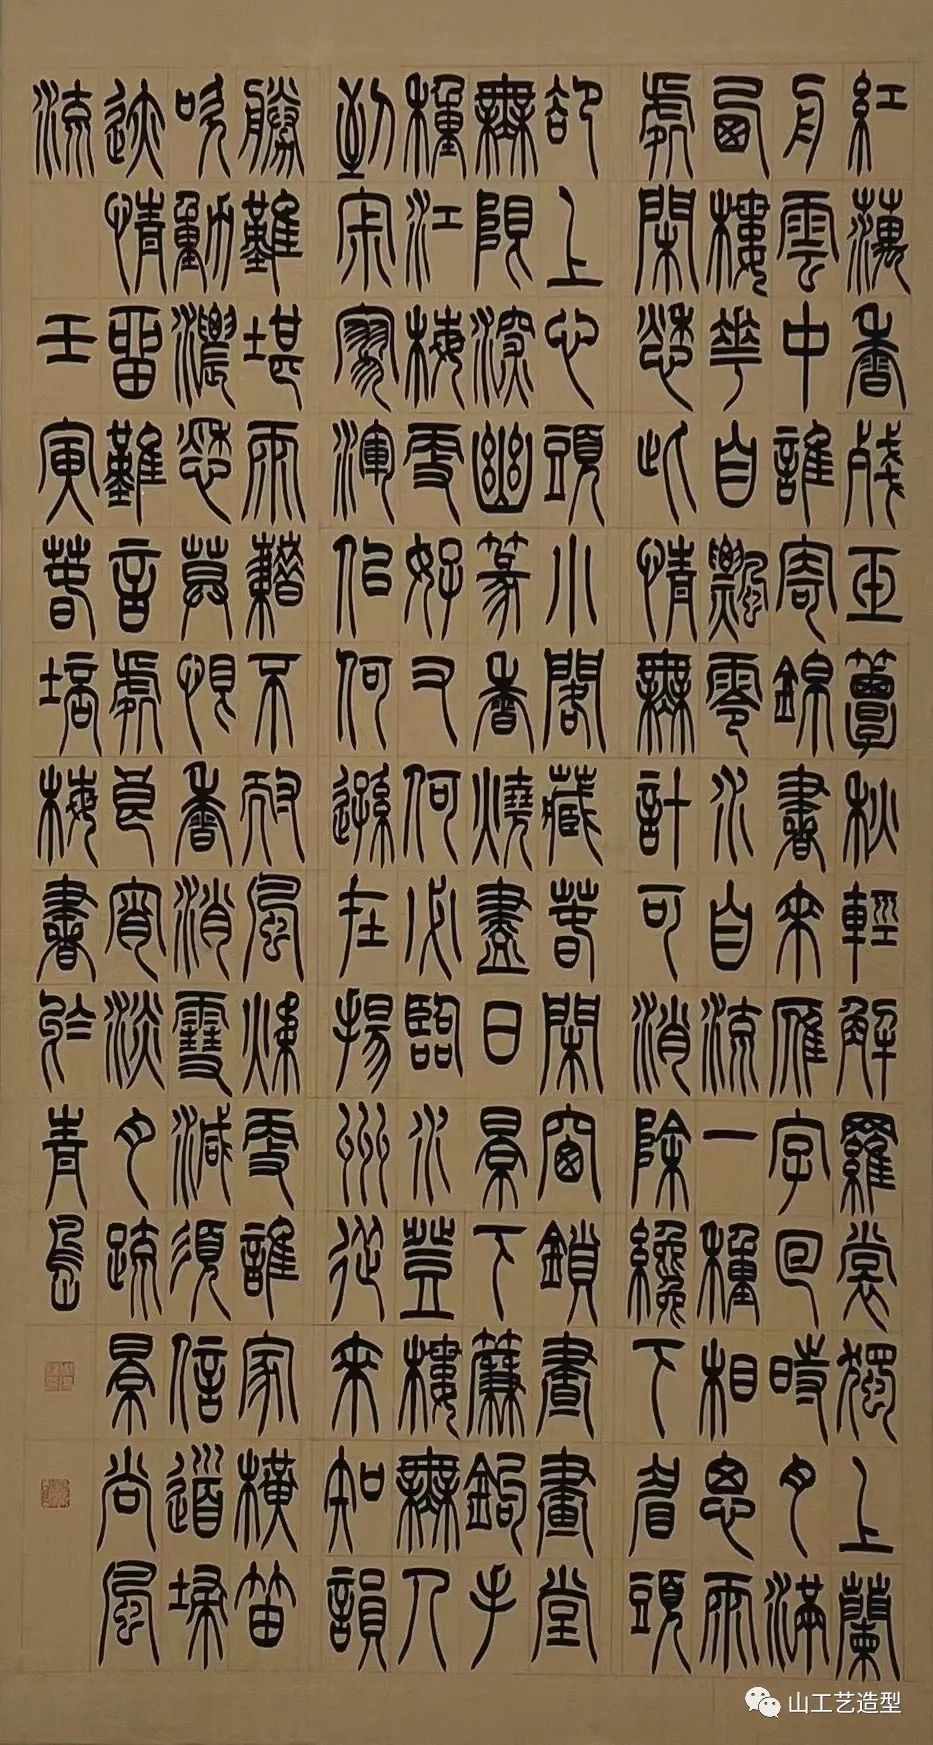 紅藕香殘玉簟秋輕解羅裳獨上蘭
舟雲中誰寄錦書來雁字回時月滿
西樓花自飄零水自流一種相思兩
處閑愁此情無計可消除纔下眉頭
卻上心頭小閣藏春閑窗鎖晝畫堂
無限深幽篆香燒盡日景下簾鉤手
種江梅更好又何必臨水登樓無人
到寂寥渾似何遜在揚州從來知韻
勝難堪雨藉不耐風揉更誰家橫笛
吹動濃愁莫恨香消雪減須信道掃
迹情留難言處良宵淡月疏景尚風
流
壬寅春培梅書於青島
山工艺造型